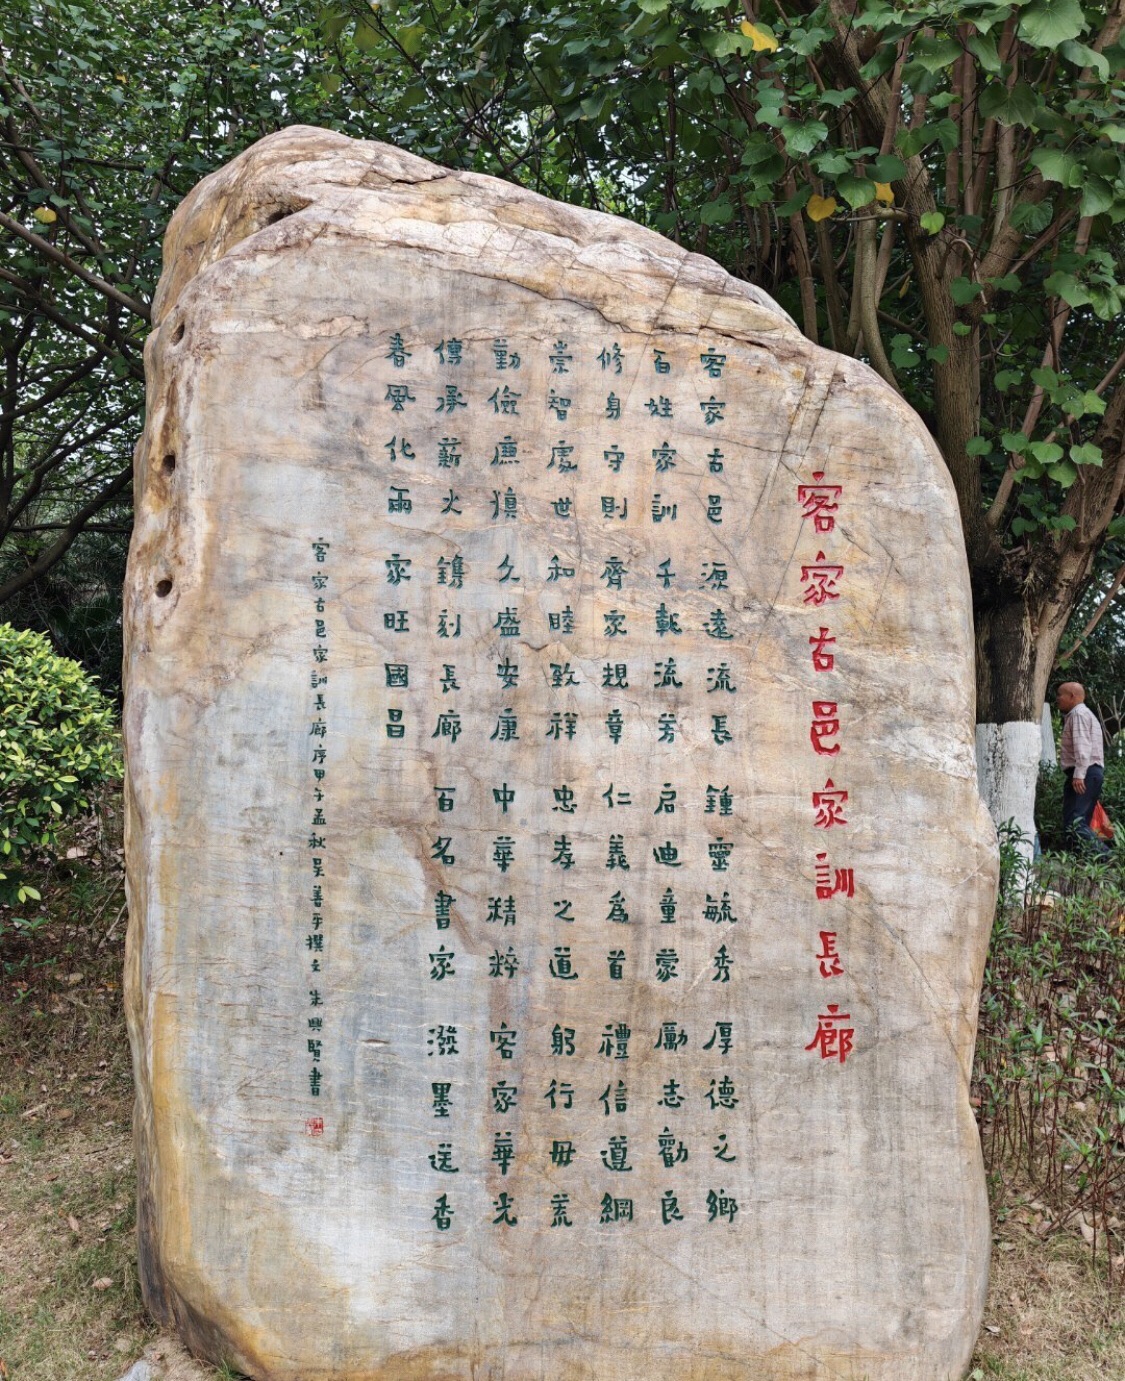 客家古邑家訓長廊
客家古邑 源遠流長 鍾靈毓秀 厚德之鄉
百姓家訓 千載流芳 启迪童蒙 勵志勸良
修身守則 齊家規章 仁義為首 禮信遵綱
崇智處世 和睦致祥 忠孝之道 躬行毋荒
勤儉廉慎 久盛安康 中華精粹 客家華光
傳承薪火 鐫刻長廊 百名書家 潑墨送香
春風化雨 家旺國昌
客家古邑家訓長廊序甲午孟秋吴善平撰文 朱興賢書